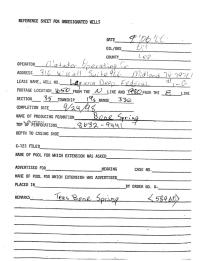 REFERENCE SHEET FOR UNDESIGNATED WELLS
DATE
CO./ORG
COUNTY Lea
OPERATOR Matador Operating Co
ADDRESS 310 W. Wall Suite 906 Midland TX 79701
LEASE NAME, WELL NO. Laguna Deep Federal #1-C
FOOTAGE LOCATION FROM THE N LINE AND FROM THE LINE
SECTION 35 TOWNSHIP 19S RANGE 33E
COMPLETION DATE
NAME OF PRODUCING FORMATION Bone Spring
TOP OF PERFORATIONS
DEPTH TO CASING SHOE
C-123 FILED
NAME OF POOL FOR WHICH EXTENSION WAS ASKED
ADVERTISED FOR HEARING CASE NO.
NAME OF POOL FOR WHICH EXTENSION WAS ADVERTISED
PLACED IN BY ORDER NO. R-
REMARKS Teas Bone Spring